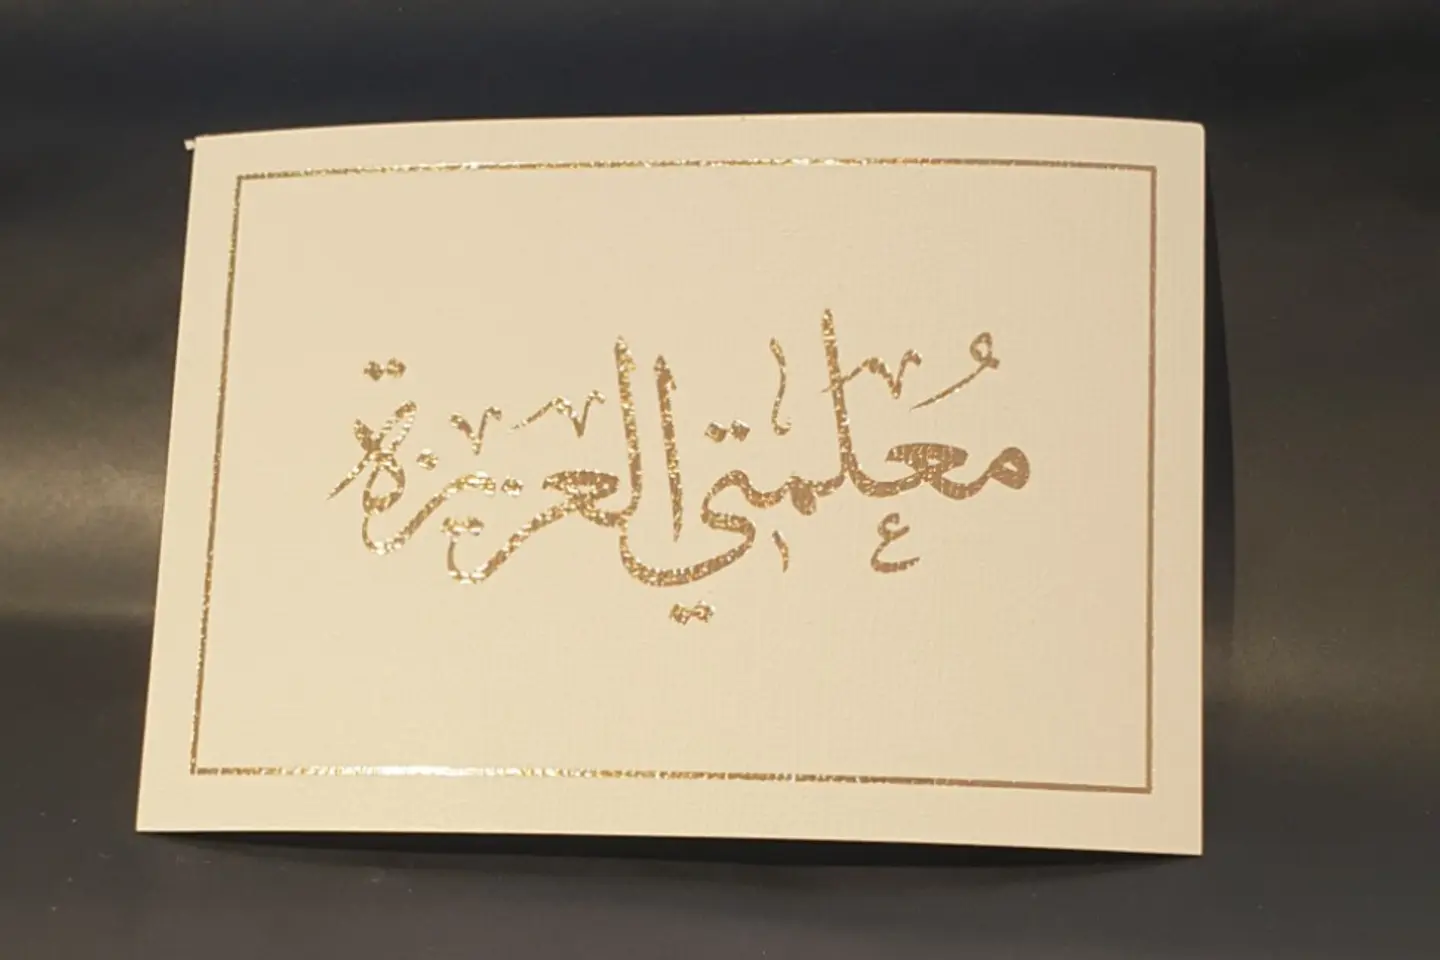 معلمتي العزيزة